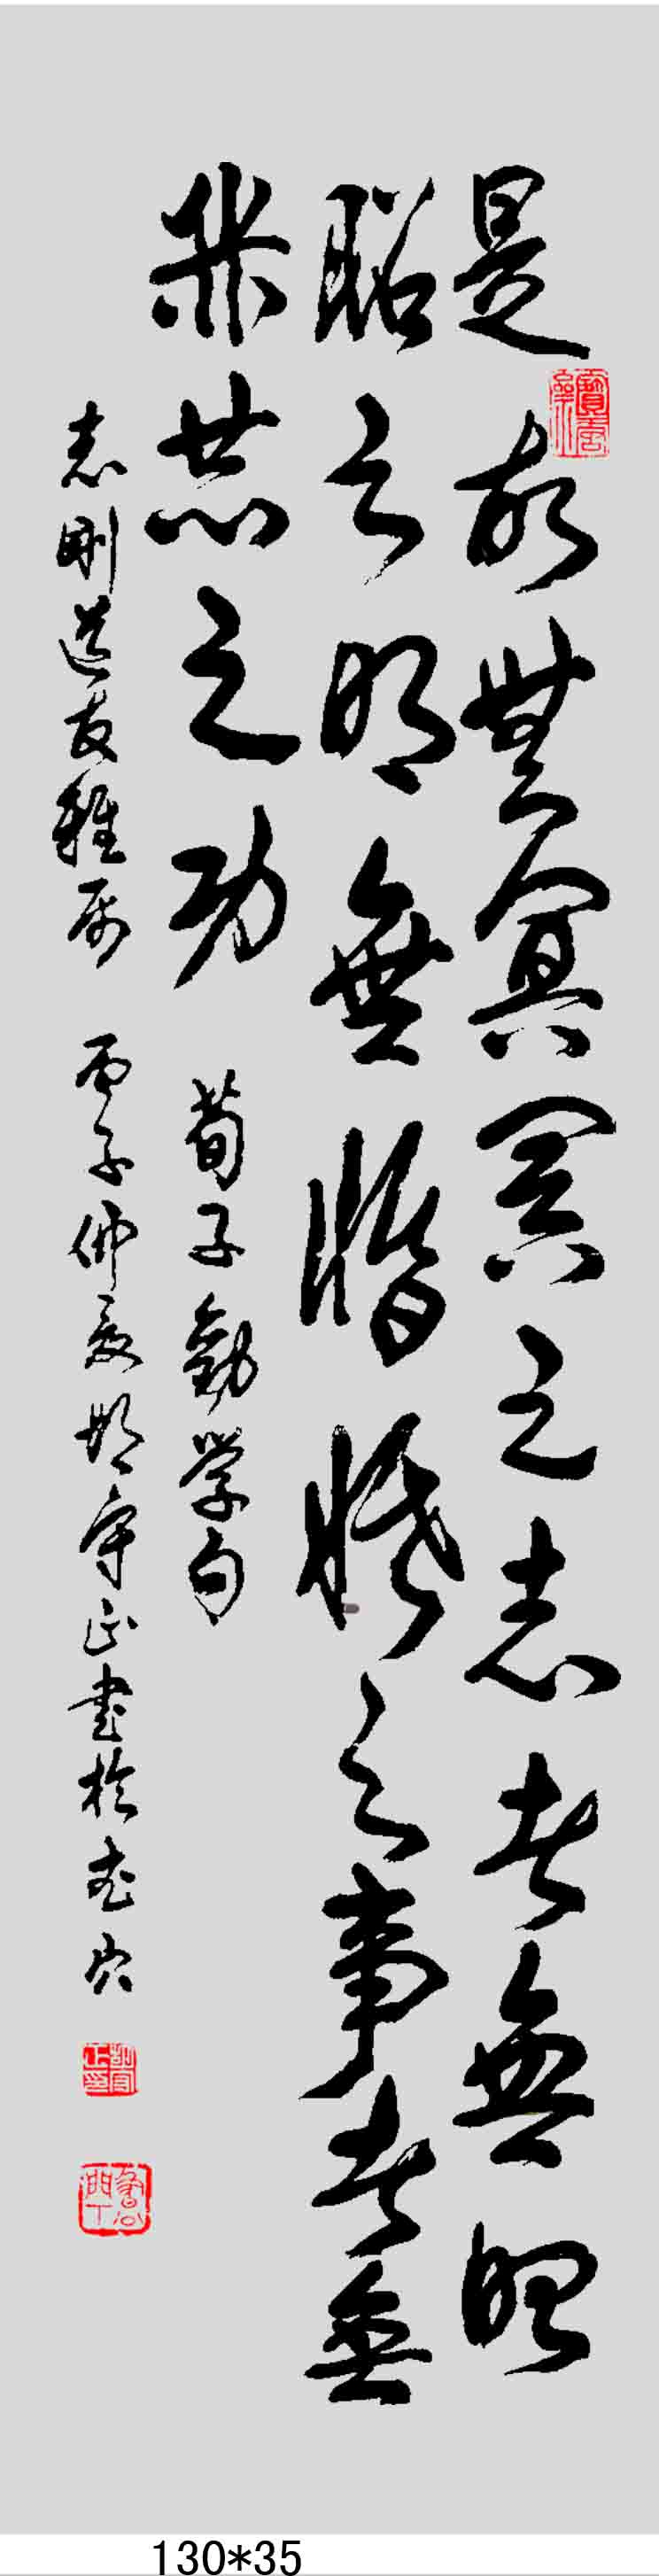 是故無冥冥之志者無昭
昭之明無惛惛之事者無
赫赫之功 荀子勸学句
志剛道友雅属 丙子仲夏胡守正書於武穴
130*35